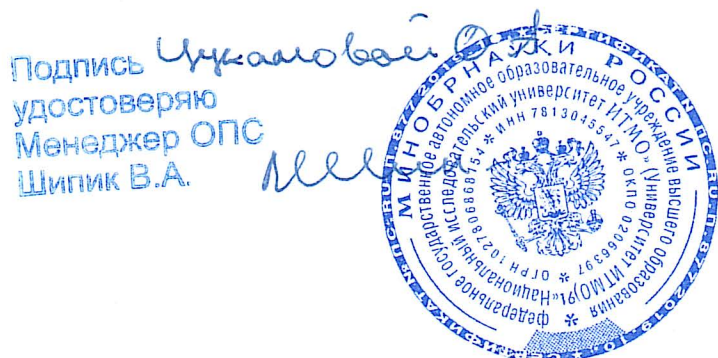 Подпись Цукановой О А
удостоверяю
Менеджер ОПС
Шипик В.А.
МИНОБРНАУКИ РОССИИ
федеральное государственное автономное образовательное учреждение высшего образования
«Национальный исследовательский университет ИТМО» (Университет ИТМО)
ОГРН 1027806868154 * ИНН 7813045547 * ОКПО 02066397 *